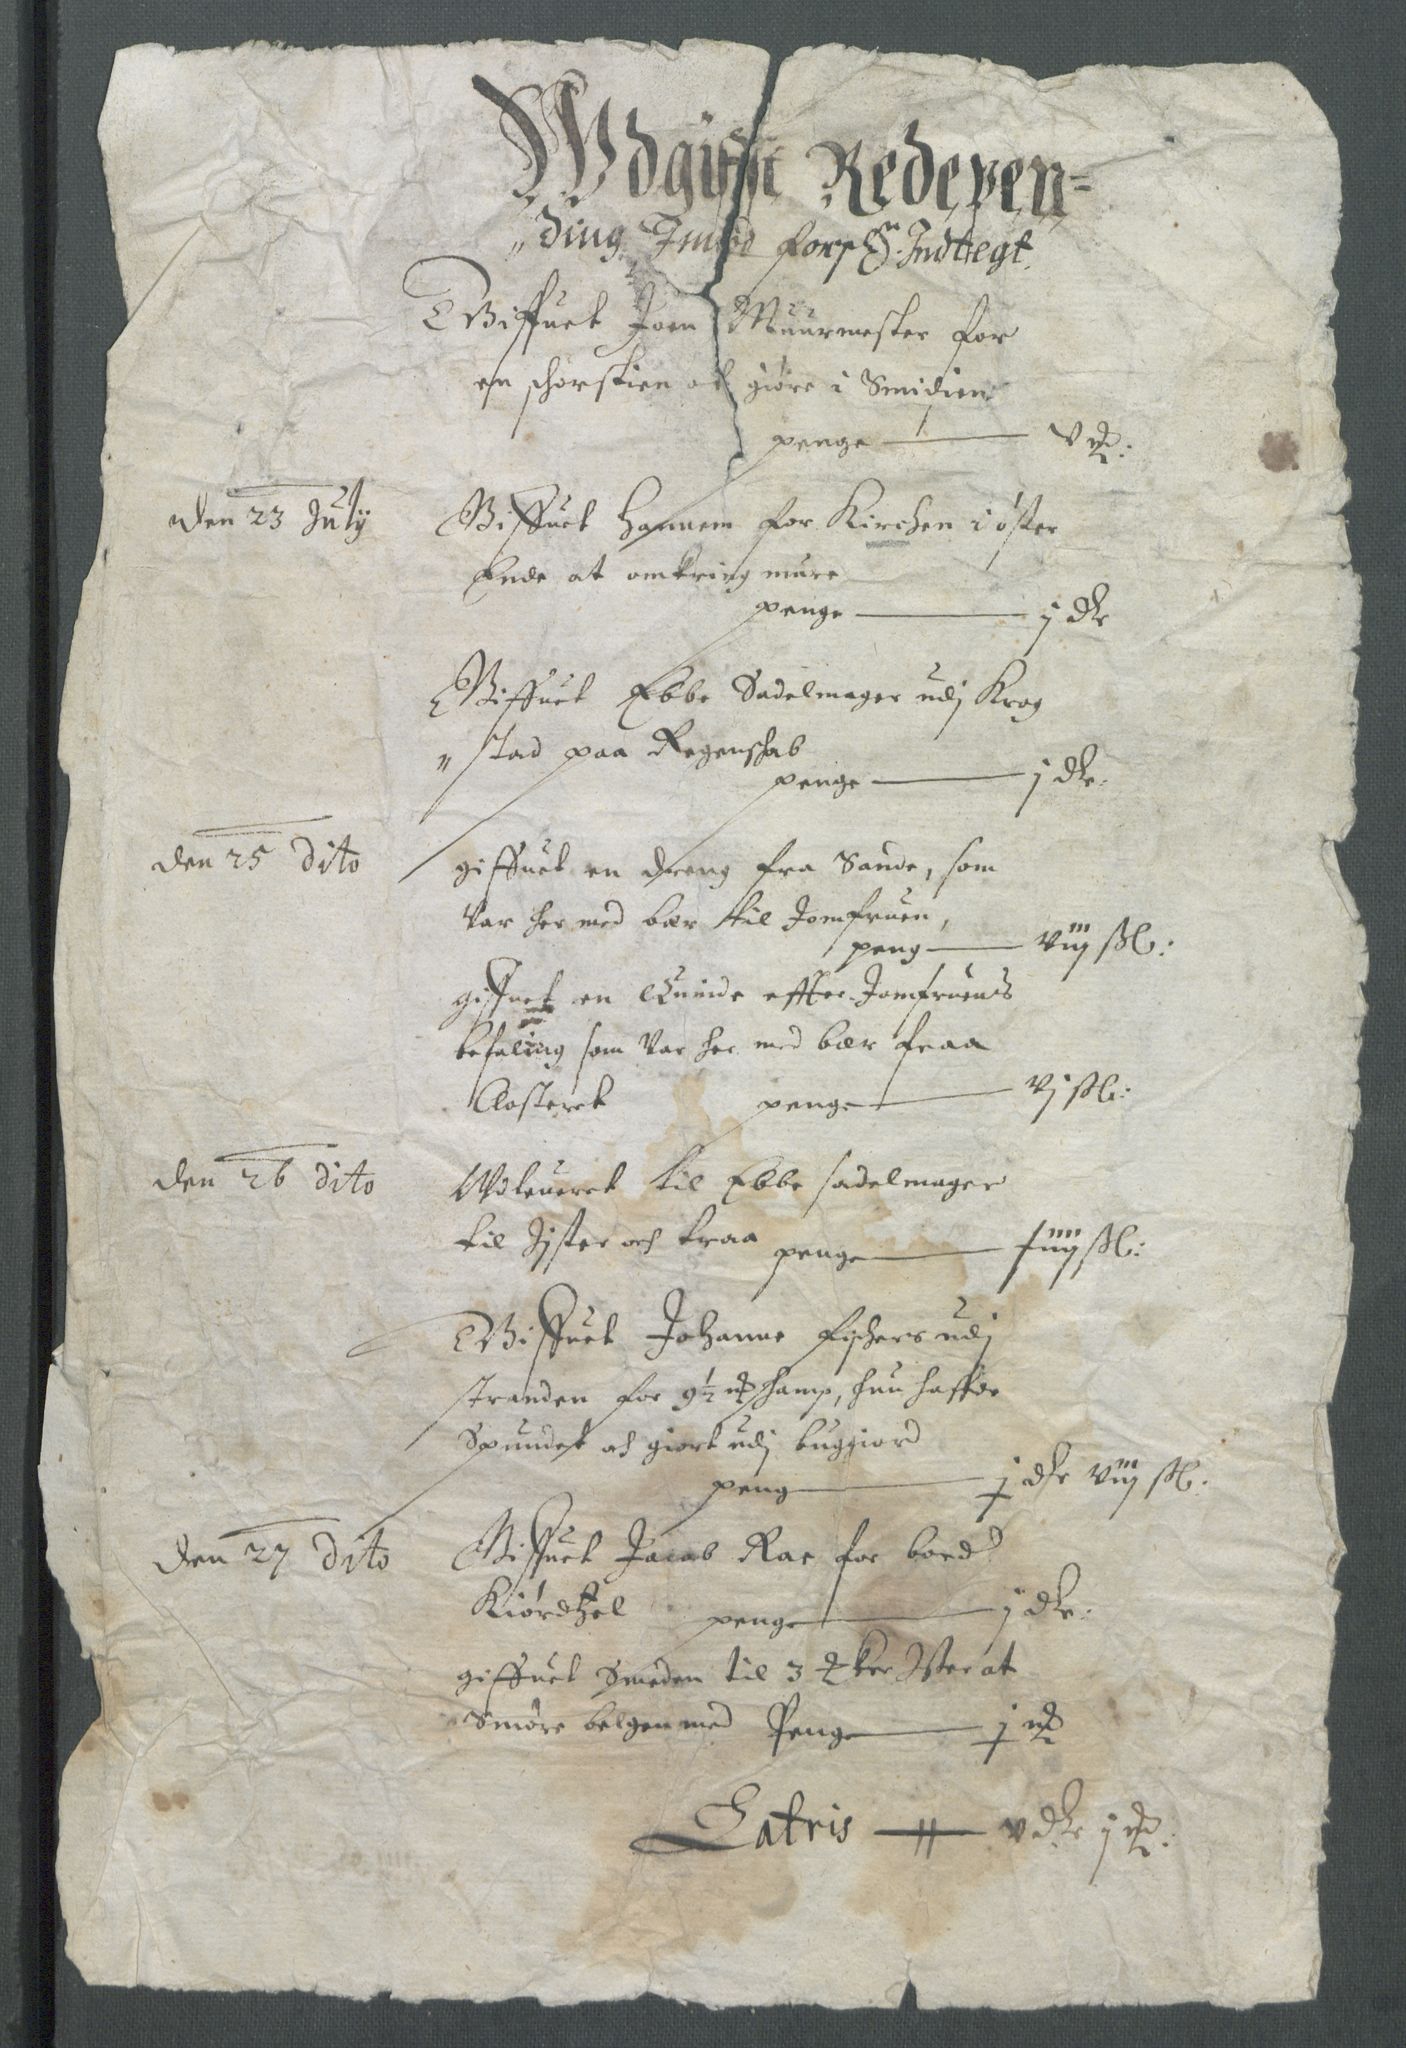 Wdgifft Redepen=
"ding Imod forsch: Indtegt.
Giffuet Joen Muurmester for
en schorstien at giøre i Smidien
penge — v
den 23 July Giffuet hannem for Kirchen i øster
Ende at omkring mure
penge — j dlr
Giffuet Ebbe Sadelmager udj Krog
"stad paa Regenschab
penge — j dlr.
den 25 Dito giffuet en dreng fra Sande, som
var her med bær til Jomfruen,
peng — viij sk:
giffuet en quinde effter Jomfruens
befaling som var her med bær fraa
Closteret penge — vj sk:
den 26 dito Wdleueret til Ebbe sadelmager
til Ister och traa penge — sk:
Giffuet Johanne Fischers udj
stranden for 9½ hamp, hun haffr
Spundet och giort udj buggiord
peng — j dlr viij sk:
den 27 Dito Giffuet Jacob Rae for boed
Kiørdtzel penge — j dlr:
giffuet Smeden til 3 Ister at
Smøre belgen med Penge — j
Latris — v dlr j